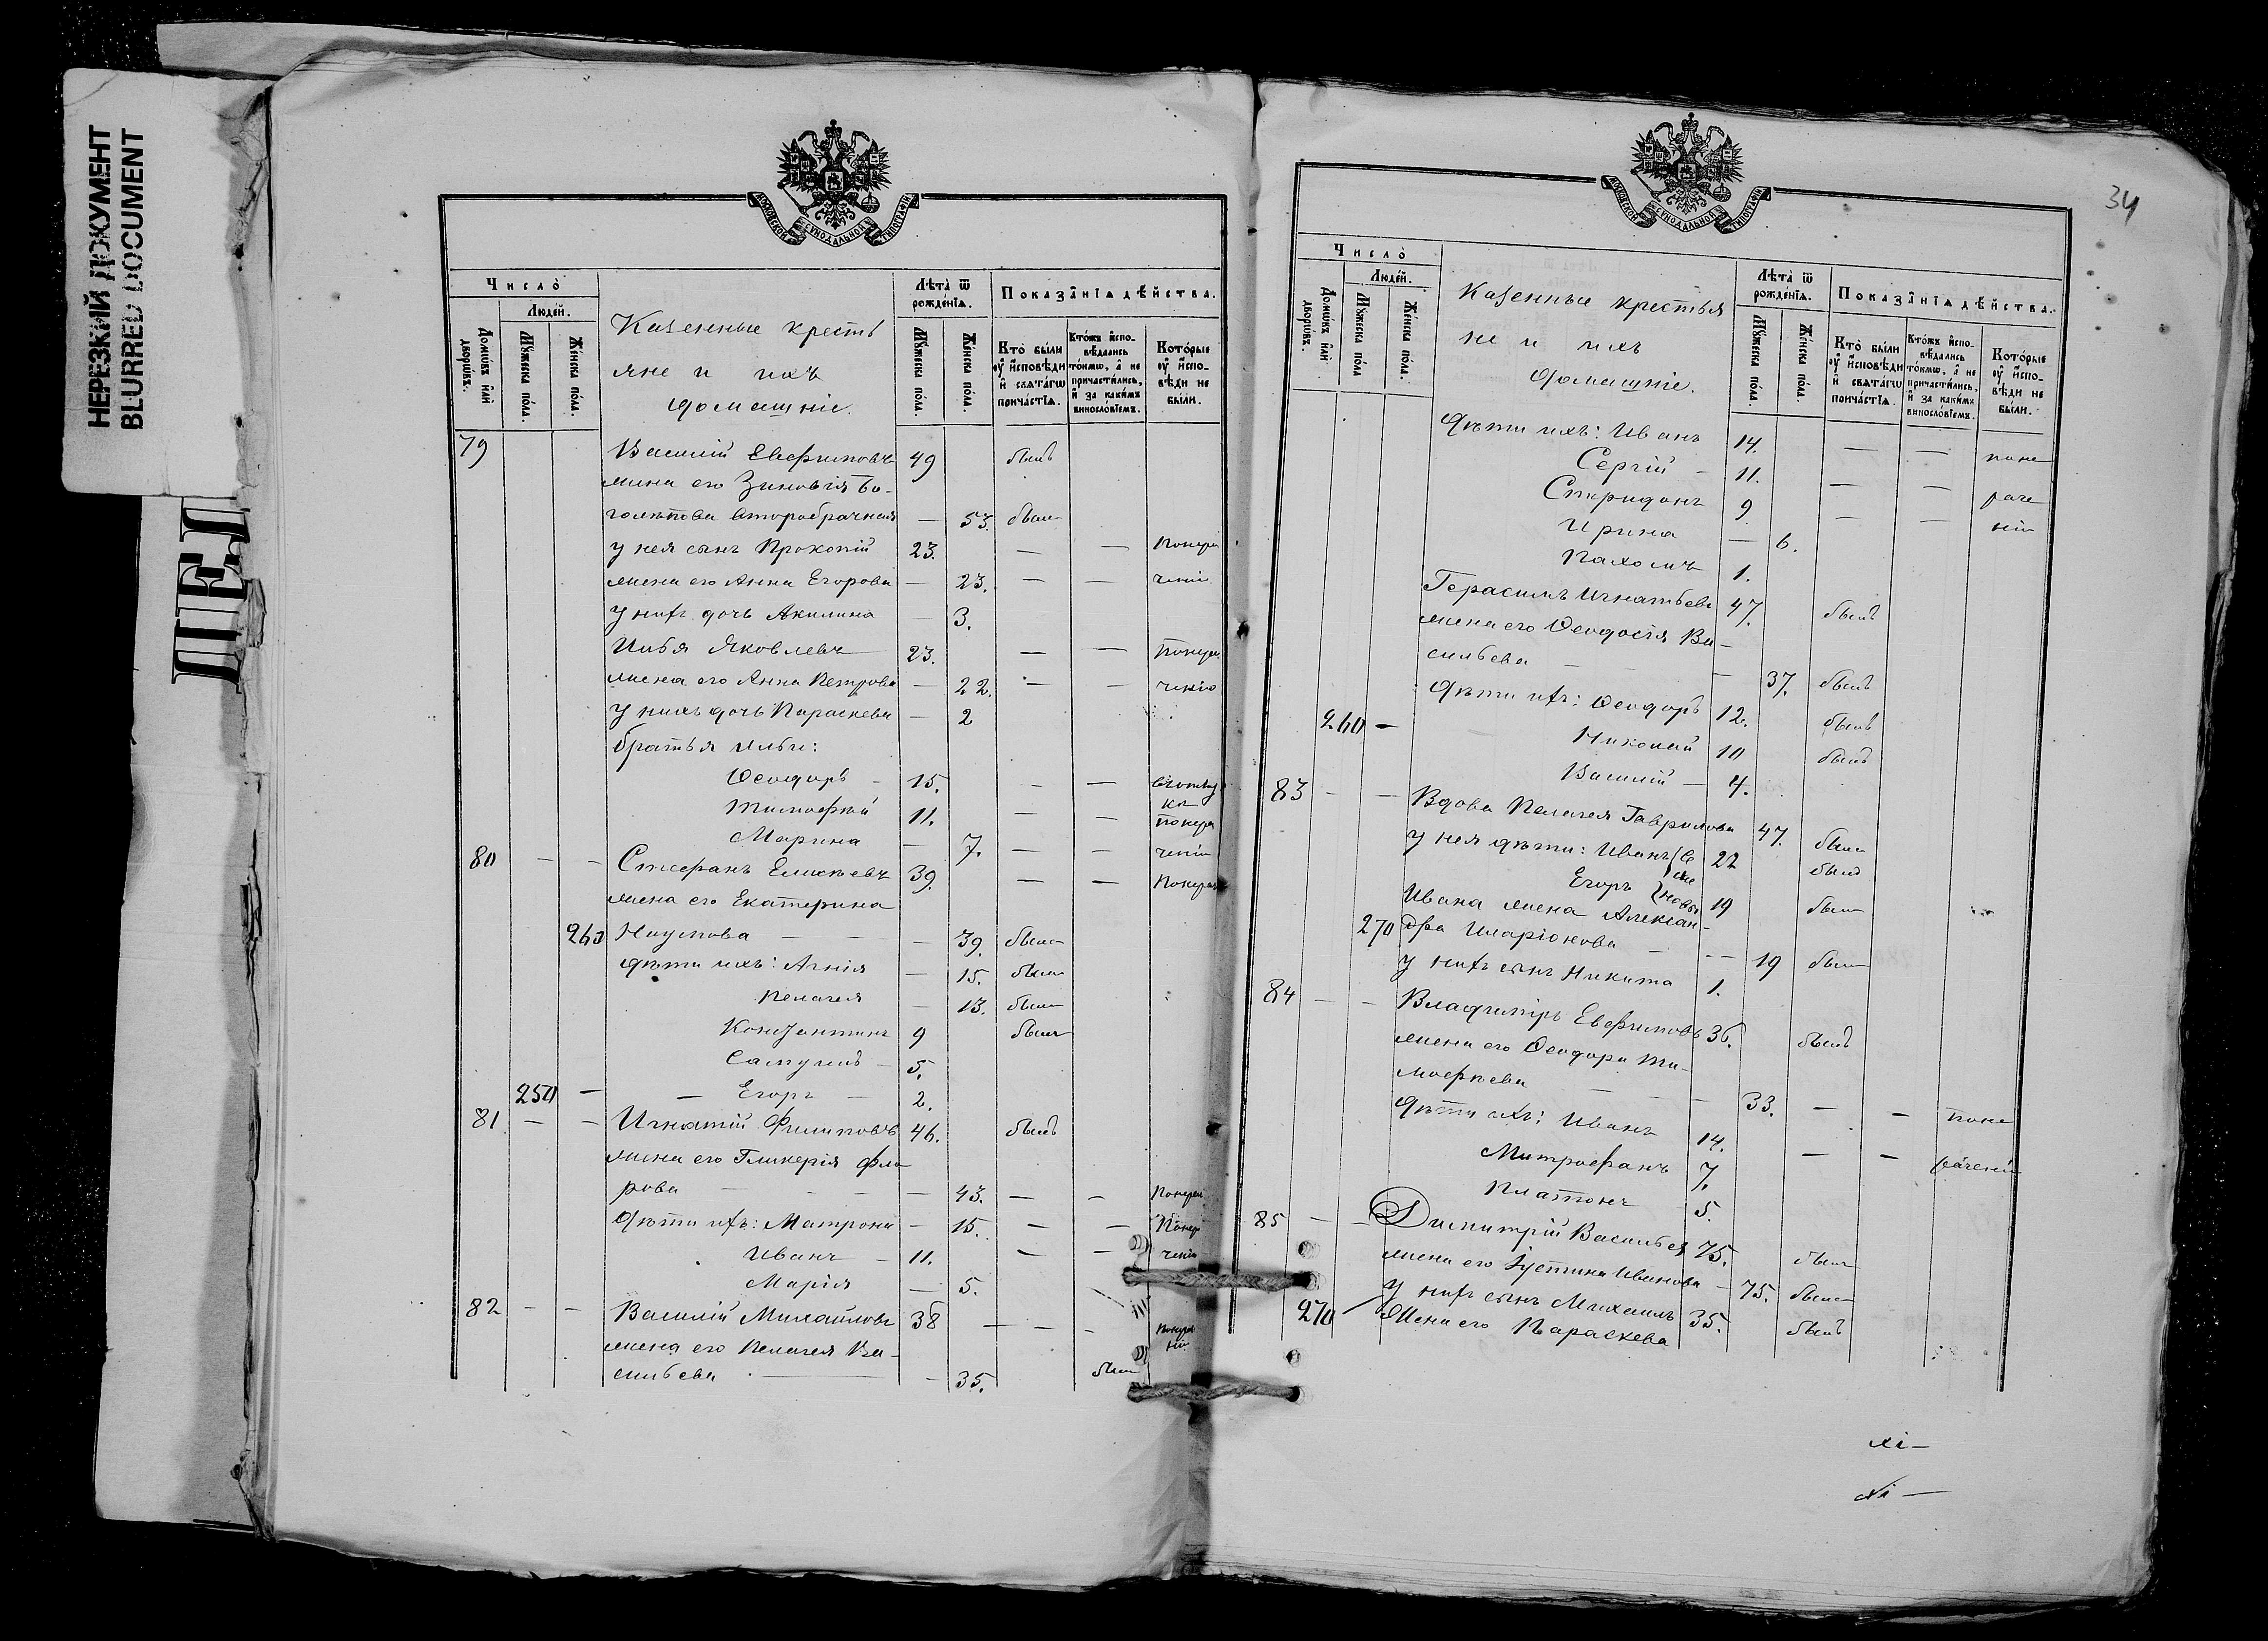 НЕРЕЗКИЙ ДОКУМЕНТ
BLURRED DOCUMENT
МОСКОВСКОЙ СѴНОДАЛЬНОЙ ТИПОГРАФІИ
Число̀
Людéй.
Домѡ́въ и҆лѝ дворѡ́въ.
Мꙋ́жеска по́ла.
Же́нска по́ла.
Казенные кресть
яне и ихъ
домашніе.
Лѣта̀ ѿ рожде́нїѧ.
Мꙋ́жеска по́ла.
Же́нска по́ла.
Показа̑нїѧ дѣ́йства.
Кто̀ бы́ли ᲂу҆ и҆сповѣ́ди и҆ свѧта́гѡ прича́стїѧ.
Кто́жъ и҆сповѣ́дались то́кмѡ, а҆ не причасти́лись, и҆ за каки́мъ винослові́емъ.
Кото́рые ᲂу҆ и҆сповѣ́ди не бы́ли.
79 Василій Евфимовъ 49 былъ
жена его Зиновія Бо-
голѣпова второбрачная — 53. была
у нея сынъ Прокопій 23. — — Понера
жена его Анна Егорова — 23. — — ченію
у нихъ дочь Акилина — 3.
Илья Яковлевъ 23. — — Понера
жена его Анна Петрова — 22. — — ченію
у нихъ дочь Параскева — 2
братья Ильи:
Ѳеодоръ — 15. — —
Тимофей 11. — — понера
Марина — 7. — — ченію
80 — — Стефанъ Елисѣевъ 39. — — Понера
жена его Екатерина
260 Наумова — — — 39. была
дѣти ихъ: Агнія — 15. была
Пелагея — 13. была
Константинъ 9 былъ
Самуилъ — 5.
250 — — Егоръ — 2.
81 — — Игнатій Филиповъ 46. былъ
жена его Гликерія Фло
рова — — — 43. — — Понера
Дѣти ихъ: Матрона — 15. — — Понер
Иванъ — 11. — — ченію
Марія — 5.
82 — — Василій Михайловъ 38 — — — понера
жена его Пелагея Ва- ній
сильева — — 35. была
34
МОСКОВСКОЙ СѴНОДАЛЬНОЙ ТИПОГРАФІИ
Число̀
Людéй.
Домѡ́въ и҆лѝ дворѡ́въ.
Мꙋ́жеска по́ла.
Же́нска по́ла.
Казенные крестья
не и ихъ
домашніе.
Лѣта̀ ѿ рожде́нїѧ.
Мꙋ́жеска по́ла.
Же́нска по́ла.
Показа̑нїѧ дѣ́йства.
Кто̀ бы́ли ᲂу҆ и҆сповѣ́ди и҆ свѧта́гѡ прича́стїѧ.
Кто́жъ и҆сповѣ́дались то́кмѡ, а҆ не причасти́лись, и҆ за каки́мъ винослові́емъ.
Кото́рые ᲂу҆ и҆сповѣ́ди не бы́ли.
дѣти ихъ: Иванъ 14. — — поне
Сергій — 11. — — раче
Спиридонъ 9 — — нію
Ирина — 6.
Пахомъ 1.
Герасимъ Игнатьевъ 47. былъ
жена его Ѳеодосія Ва-
сильева — — 37. была
дѣти ихъ: Ѳеодоръ 12. былъ
260 — Николай 10 былъ
Василій — 4.
83 — — Вдова Пелагея Гаврилова 47. была
у нея дѣти: Иванъ 22 былъ
Егоръ 19 былъ
Ивана жена Алексан-
270 дра Иларіонова — — 19 была
у нихъ сынъ Никита 1.
84 — — Владимиръ Евфимовъ 36. былъ
жена его Ѳеодора Ти-
мофеева — — — 33. — — поне
Дѣти ихъ: Иванъ 14. — — раченію
Митрофанъ 7.
Платонъ 5.
85 — — Димитрій Васильев 75. былъ
жена его Іустина Иванова — 75. была
у нихъ сынъ Михаилъ 35. былъ
270 Жена его Параскева